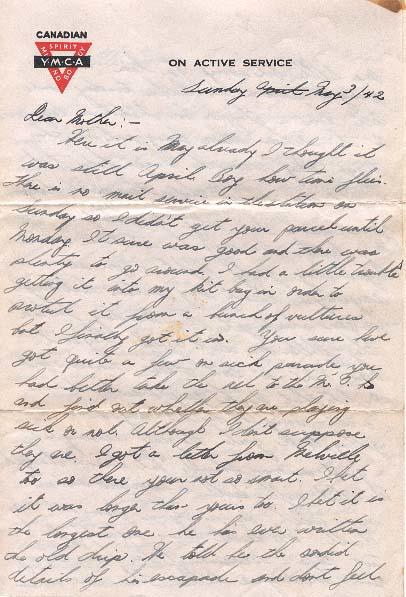 CANADIAN
SPIRIT
Y·M·C·A
MIND
BODY
ON ACTIVE SERVICE
Sunday April May 3/42
Dear Mother:-
Here it is May already I thought it
was still April. Boy how time flies.
There is no mail service in this station on
Sunday so I didn't get your parcel until
Monday. It sure was good and there was
plenty to go around. I had a little trouble
getting it into my kit bag in order to
protect it from a bunch of vultures
but I finally got it in. You sure have
got quite a few on sick parade you
had better take the all to the M.O.
and find out whether they are playing
sick or not. Although I don't suppose
they are. I got a letter from Melville
too so there your not so smart. I bet
it was longer than yours too. I bet it is
the longest one he has ever written
the old drip. He told me the sordid
details of his escapade and dont feel